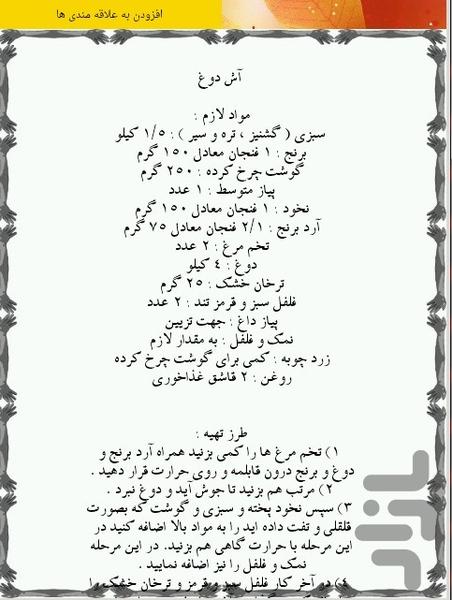 افزودن به علاقه مندی ها
آش دوغ
مواد لازم :
سبزی ( گشنیز ، تره و سیر ) : ۱/۵ کیلو
برنج : ۱ فنجان معادل ۱۵۰ گرم
گوشت چرخ کرده : ۲۵۰ گرم
پیاز متوسط : ۱ عدد
نخود : ۱ فنجان معادل ۱۵۰ گرم
آرد برنج : ۲/۱ فنجان معادل ۷۵ گرم
تخم مرغ : ۲ عدد
دوغ : ٤ کیلو
ترخان خشک : ۲۵ گرم
فلفل سبز و قرمز تند : ۲ عدد
پیاز داغ : جهت تزیین
نمک و فلفل : به مقدار لازم
زرد چوبه : کمی برای گوشت چرخ کرده
روغن : ۲ قاشق غذاخوری
طرز تهیه :
۱) تخم مرغ ها را کمی بزنید همراه آرد برنج و
دوغ و برنج درون قابلمه و روی حرارت قرار دهید .
۲) مرتب هم بزنید تا جوش آید و دوغ نبرد .
۳) سپس نخود پخته و سبزی و گوشت که بصورت
قلقلی و تفت داده اید را به مواد بالا اضافه کنید در
این مرحله با حرارت گاهی هم بزنید. در این مرحله
نمک و فلفل را نیز اضافه نمایید .
٤) در آخر کار فلفل سبز و قرمز و ترخان خشک را
بازار